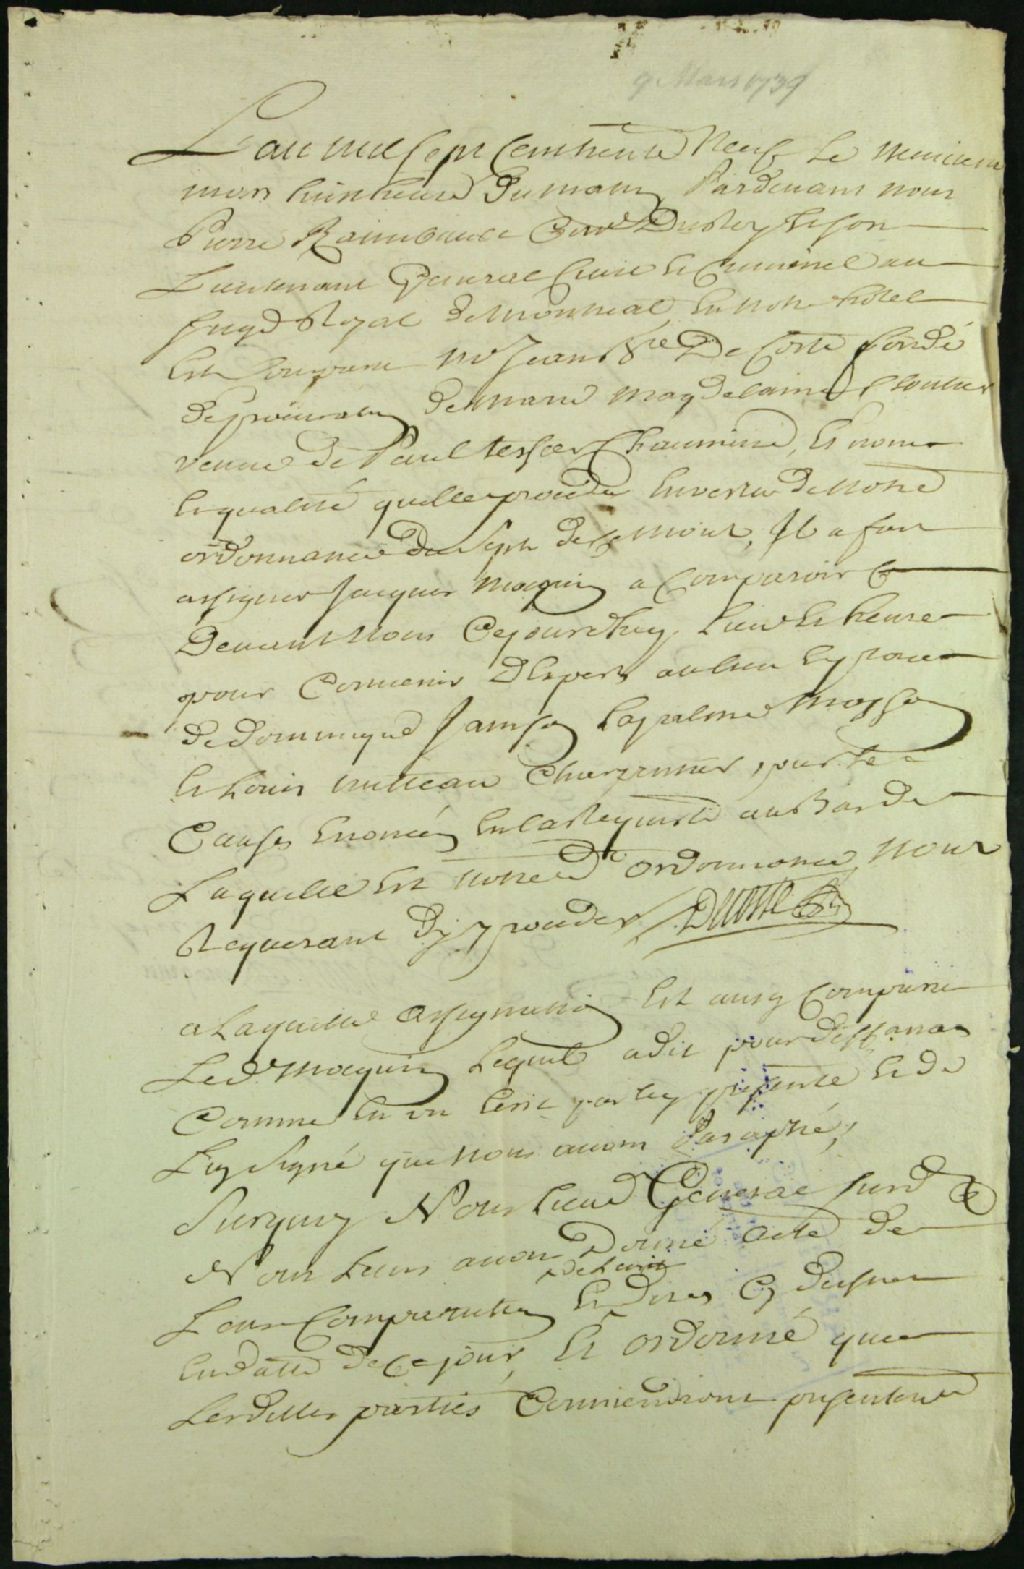 9 Mars 1739
L'an mil sept cent trente Neuf le neufieme
mars huit heure Du matin Pardevant nous
Pierre Raimbault Coner Du Roy & son
Lieutenant General Civil et Criminel au
siege Royal de Montreal, En notre hotel
Est Comparu Me Jean Bte De Coste fondé
de procuration de Marie Magdelaine Cloutier
veuve de Paul tessier Chaumine, Es noms
Et qualité quelle procede En vertu de notre
ordonnance du sept de Ce Mois, Il a fait
assigner Jacques Moquin a Comparoir
Devant Nous Cejourdhuy, Lieu et heure
pour Convenir d'Expert au lieu Et place
de dominique Janson Lapalme Masson
et Louis Charpentier, pour les
Causes Enoncées En la Requeste au Bas de
Laquelle Est notred ordonnance, Nous
Requerant d'y proceder Decoste
a Laquelle assignation Est aussy Comparu
Led Moquin Lequel a dit pour deffances
Comme En un Ecrit par luy presenté Et de
Luy signé que nous avons Paraphé,
Surquoy Nous Lieut General susd
Nous Leur avons Donné acte de
de Lecrit
Leur Comparution Et dires Cy dessus
En datte de Ce jour, Et ordonné que
Lesdittes parties Conviendront presentemt